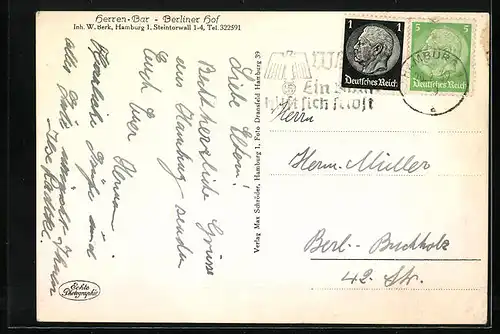 Herren-Bar - Berliner Hof
Inh. W. Berk, Hamburg 1, Steintorwall 1-4, Tel. 322591
Liebe Eltern!
Recht herzliche Grüsse
aus Hamburg senden
Euch Euer Herman
Herzliche Grüße und
alles Gute wünscht Ihnen
Ilse
Echte
Photographie
Verlag Max Schröder, Hamburg 1, Foto Dransfeld Hamburg 39
1
Deutsches Reich
5
Deutsches Reich
HAMBURG
1
a
Ein Volk
hilft sich selbst
Herrn
Herm. Müller
Berl.- Buchholz
42. Str.